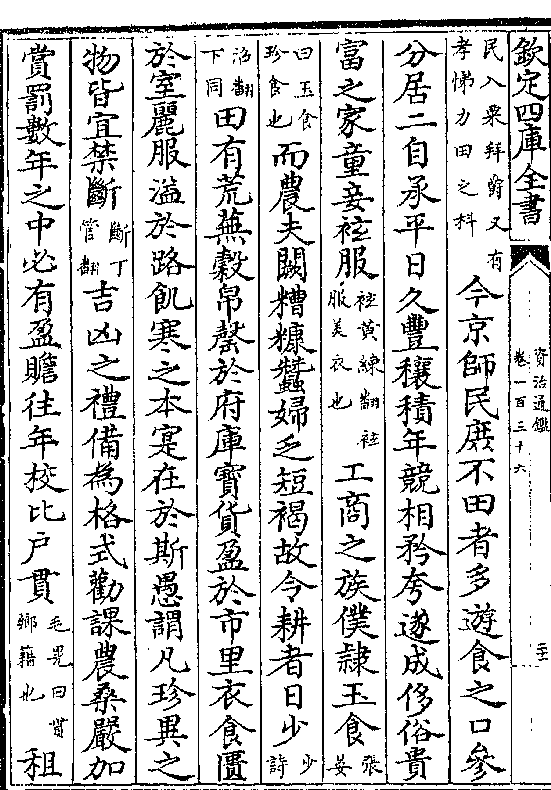 欽定四庫全書
資治通鑑
卷一百三十六
民入粟拜爵又有
孝悌力田之科
今京師民庶不田者多遊食之口參
分居二自承平日久豐穰積年競相矜夸遂成侈俗貴
富之家童妾袨服
袨黄練翻袨
服美衣也
工商之族僕隸玉食
張
晏
曰玉食
珍食也
而農夫闕糟糠蠶婦乏短褐故令耕者日少
少
詩
沼翻
下同
田有荒蕪穀帛罄於府庫寶貨盈於市里衣食匱
於室麗服溢於路飢寒之本寔在於斯愚謂凡珍異之
物皆宜禁斷
斷丁
管翻
吉凶之禮備為格式勸課農桑嚴加
賞罰數年之中必有盈贍往年校比户貫
毛晃曰貫
鄉籍也
租